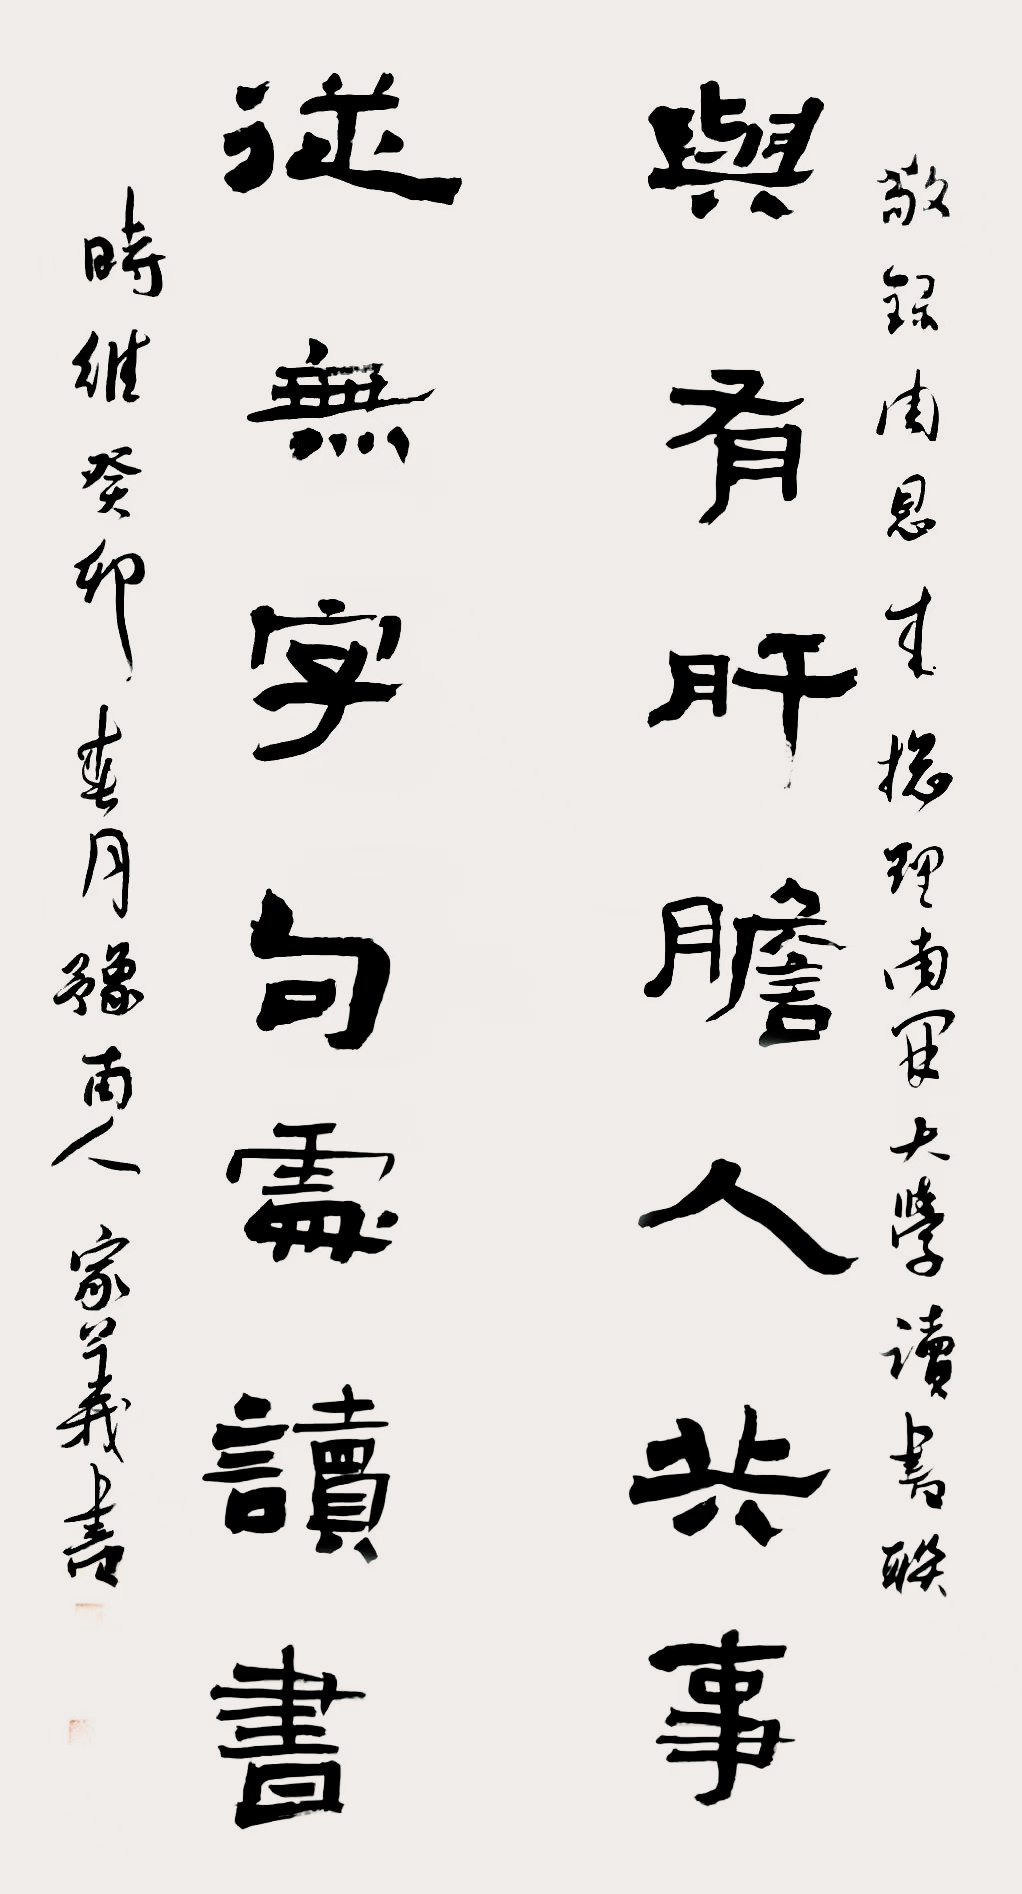 敬録周恩来揔理南開大學讀書聯
與有肝膽人共事
從無字句處讀書
時維癸卯春月豫南人家義書